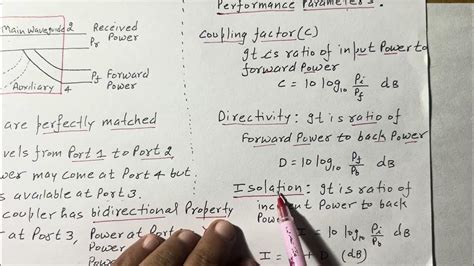 Main Waveguide 2
Received
Pr Power
Pf Forward
Auxiliary 4 Power
are perfectly matched
vels from Port 1 to Port 2
wer may come at Port 4 but
s available at Port 3.
coupler has bidirectional Property
r at Port 3, Power at Port
Performance Parameters.
Coupling factor (C)
It is ratio of input Power to
forward Power
C = 10 log10 Pi/Pf dB
Directivity: It is ratio of
forward Power to back Power
D = 10 log10 Pf/Pb dB
Isolation: It is ratio of
incident Power to back
Power
I = 10 log10 Pi/Pb dB
I = + D (dB)